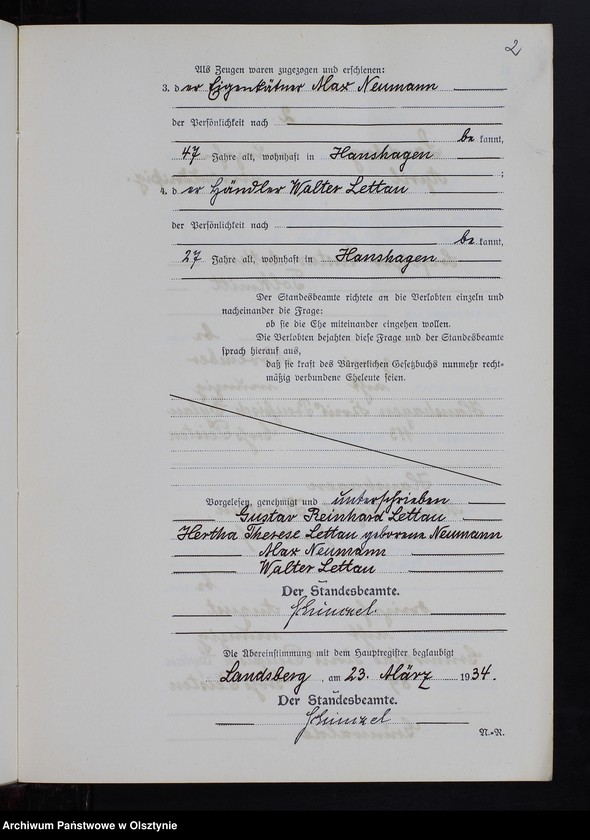 2
Als Zeugen waren zugezogen und erschienen:
3. der Eigenkätner Max Neumann
der Persönlichkeit nach
bekannt,
47 Jahre alt, wohnhaft in Hanshagen
;
4. der Händler Walter Lettau
der Persönlichkeit nach
bekannt,
27 Jahre alt, wohnhaft in Hanshagen
Der Standesbeamte richtete an die Verlobten einzeln und
nacheinander die Frage:
ob sie die Ehe miteinander eingehen wollen.
Die Verlobten bejahten diese Frage und der Standesbeamte
sprach hierauf aus,
daß sie kraft des Bürgerlichen Gesetzbuchs nunmehr recht-
mäßig verbundene Eheleute seien.
Vorgelesen, genehmigt und unterschrieben
Gustav Reinhard Lettau
Hertha Therese Lettau geborene Neumann
Max Neumann
Walter Lettau
Der Standesbeamte.
Die Übereinstimmung mit dem Hauptregister beglaubigt
Landsberg, am 23. März 1934.
Der Standesbeamte.
N.-R.
Archiwum Państwowe w Olsztynie